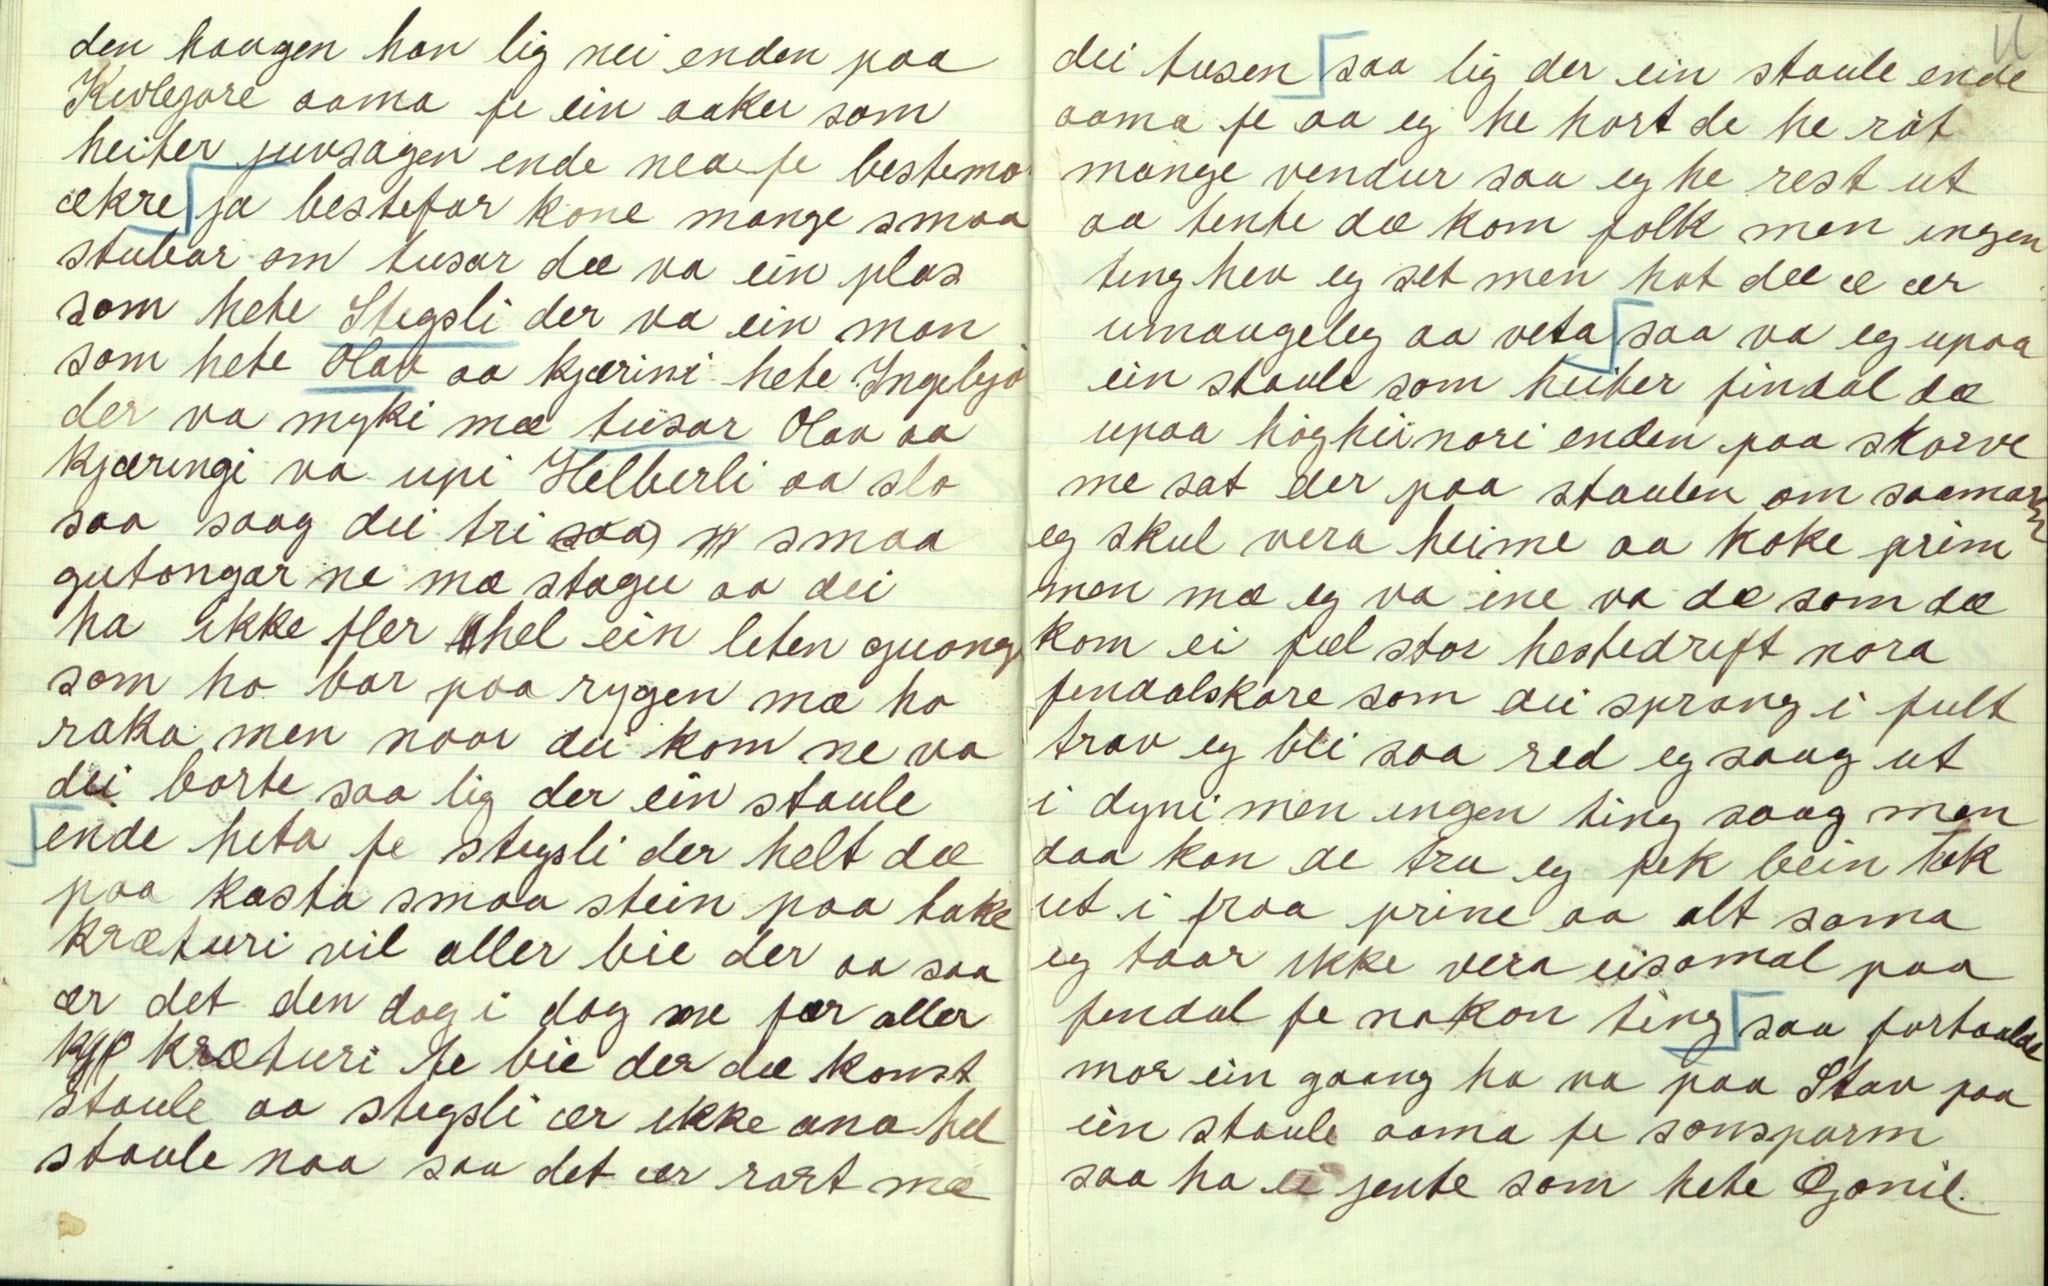 den haugen han lig nei enden paa
Kivlegare aama fe ein aaker som
heiter juvsagen ende nea fe bestemo
ækre ja bestefar kone mange smaa
stubar om tusar dæ va ein plas
som hete Stegsli der va ein man
som hete Olav aa kjærini hete Ingebjø
der va myki mæ tusar Olav aa
kjæringi va upi Helberli aa slo
saa saag dei tri smaa
gutongar ne mæ stogu aa dei
ha ikke fler hel ein leten guong
som ho bar paa rygen mæ ho
raka men naar dei kom ne va
dei borte saa lig der ein staule
ende heta fe stegsli der helt dæ
paa kasta smaa stein paa take
kræturi vil aller bie der aa saa
ær det den dag i dag me fær aller
kræturi te bie der dæ konst
staule aa stegsli ær ikke ana hel
staule naa saa det ær rart mæ
dei tusen saa lig der ein staule ende
aama fe aa eg he hørt de he rót
mange vendur saa eg he rest ut
aa tente dæ kom folk men ingen
ting hev eg set men hot dæ æ ær
umaugeleg aa veta saa va eg upaa
ein staule som heiter findal dæ
upaa høghei nori enden paa skorve
me sat der paa staulen om saamar
eg skul vera heime aa koke prim
men mæ eg va ine va dæ som dæ
kom ei fæl stor hestedrift nora
fendalskare som dei sprang i fult
trav eg blei saa red eg saag ut
i dyni men ingen ting saag men
daa kan de tru eg fek bein tok
ut i fraa prine aa alt sama
eg taar ikke vera eisamal paa
fendal fe nokon ting saa fortaalde
mor ein gaang ho va paa Stav paa
ein staule aama fe sonsparm
saa ha ei jente som hete Gonil